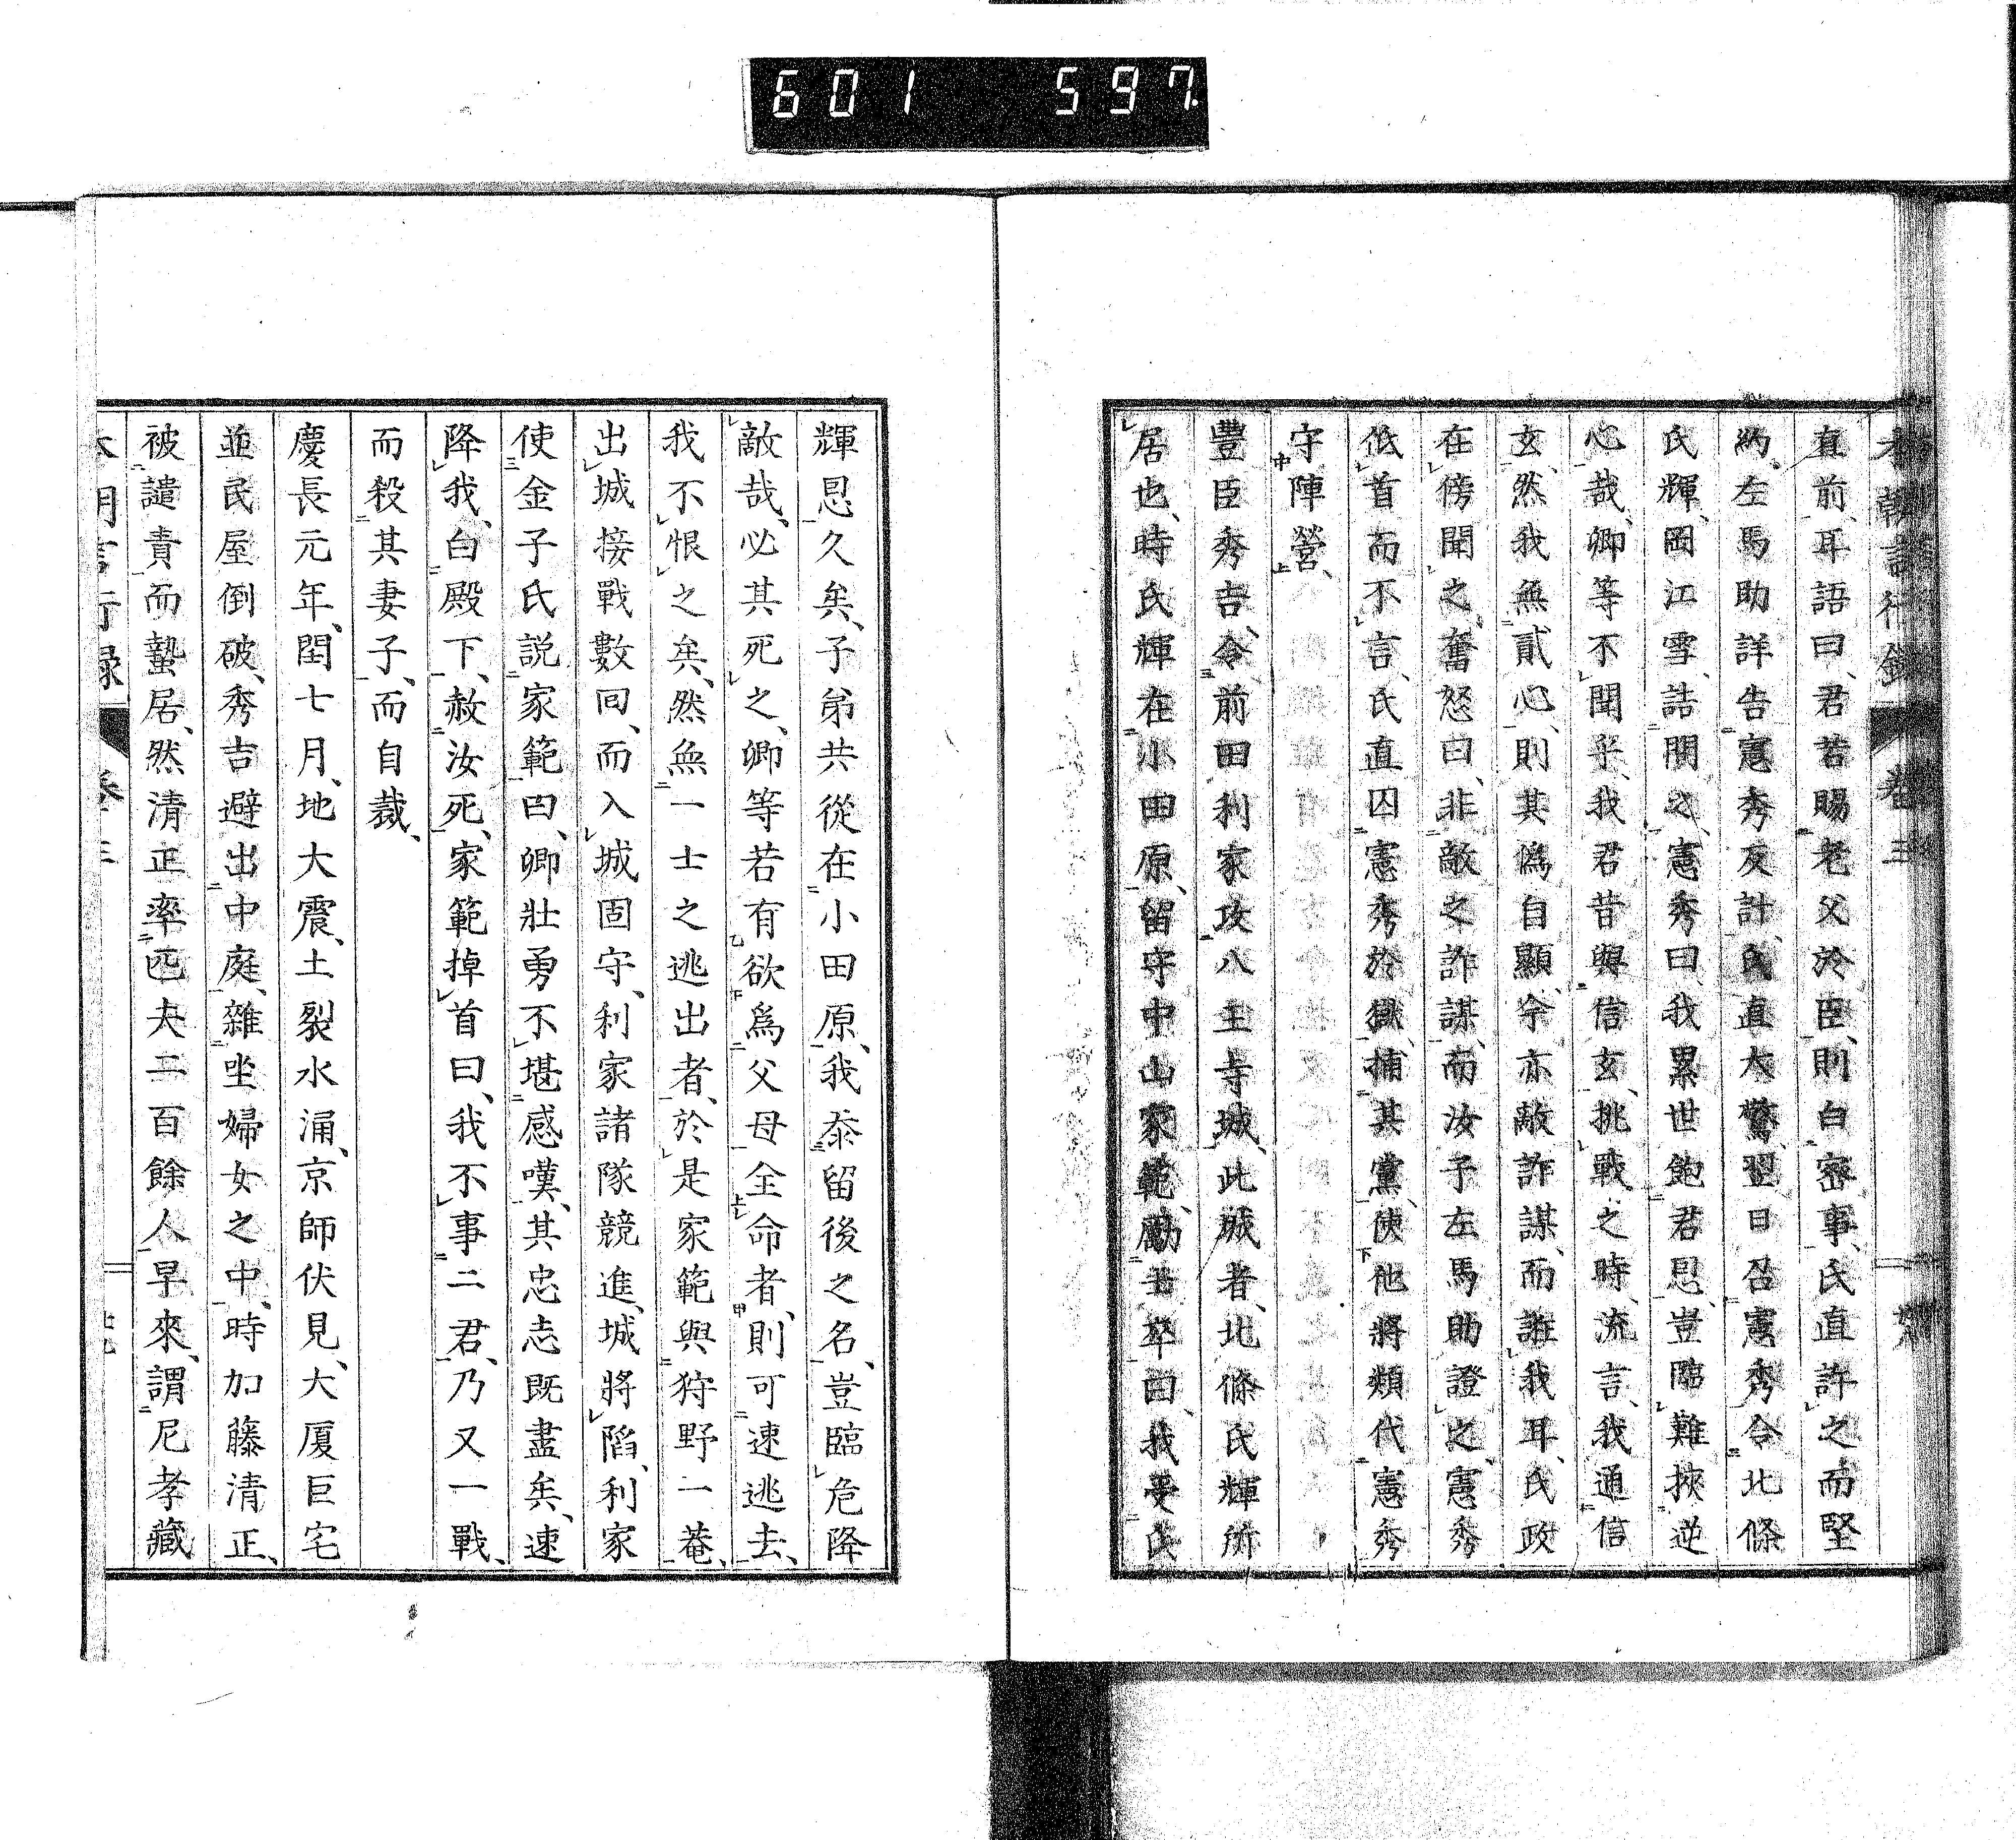 601 597
本朝言行錄 卷三
直前、耳語曰、君若賜老父於臣、則白密事、氏直許之而堅
約、左馬助詳告憲秀反計、氏直大驚、翌日召憲秀、令北條
氏輝、岡江雪詰問之、憲秀曰、我累世飽君恩、豈臨難挾逆
心哉、卿等不聞乎、我君昔與信玄、挑戰之時、流言、我通信
玄、然我無貳心、則其僞自顯、今亦敵詐謀、而誑我耳、氏政
在傍聞之、奮怒曰、非敵之詐謀、而汝子左馬助證之、憲秀
低首而不言、氏直囚憲秀於獄、捕其黨、使他將類代憲秀
守陣營、
豐臣秀吉、令前田利家攻八王寺城、此城者、北條氏輝所
居也、時氏輝在小田原、留守中山家範、勵士卒曰、我受氏
輝恩久矣、子弟共從在小田原、我忝留後之名、豈臨危降
敵哉、必其死之、卿等若有欲爲父母全命者、則可速逃去、
我不恨之矣、然無一士之逃出者、於是家範與狩野一菴、
出城接戰數回、而入城固守、利家諸隊競進、城將陷、利家
使金子氏説家範曰、卿壯勇不堪感嘆、其忠志既盡矣、速
降我、白殿下、赦汝死、家範掉首曰、我不事二君、乃又一戰、
而殺其妻子、而自裁、
慶長元年、閏七月、地大震、土裂水涌、京師伏見、大廈巨宅
並民屋倒破、秀吉避出中庭、雜坐婦女之中、時加藤清正、
被譴責而蟄居、然清正率匹夫二百餘人早來、謂尼孝藏
本朝言行録 卷三